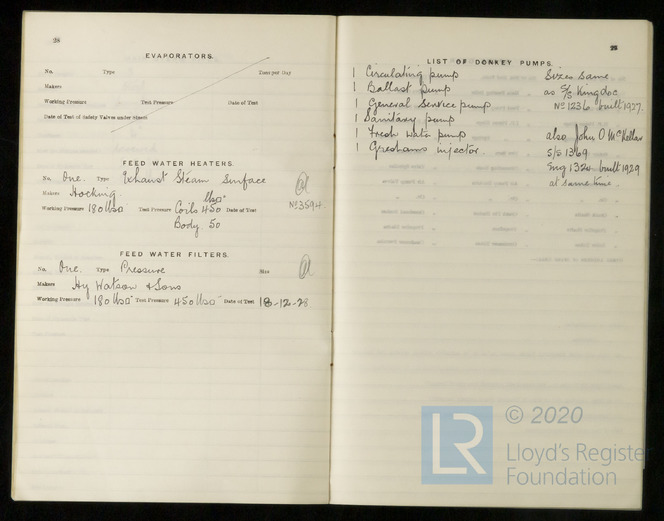 28
EVAPORATORS.
No. Type Tons per Day
Makers
Working Pressure Test Pressure Date of Test
Date of Test of Safety Valves under Steam
FEED WATER HEATERS.
No. One. Type Exhaust Steam Surface
Makers Hocking
Working Pressure 180 lbs Test Pressure Coils 450 lbs Date of Test No 3594.
Body 50
FEED WATER FILTERS.
No. One. Type Pressure Size
Makers Hy Watson & Sons
Working Pressure 180 lbs Test Pressure 450 lbs Date of Test 18-12-28.
28
LIST OF DONKEY PUMPS.
1 Circulating pump Sizes same
1 Ballast pump as S/S Kingdoc
1 General Service pump No 1236 built 1927.
1 Sanitary pump
1 Fresh water pump also John O McKellar
1 Greshams injector. S/S 1369
Eng 1320 built 1929
at same time.
LR
© 2020
Lloyd's Register
Foundation